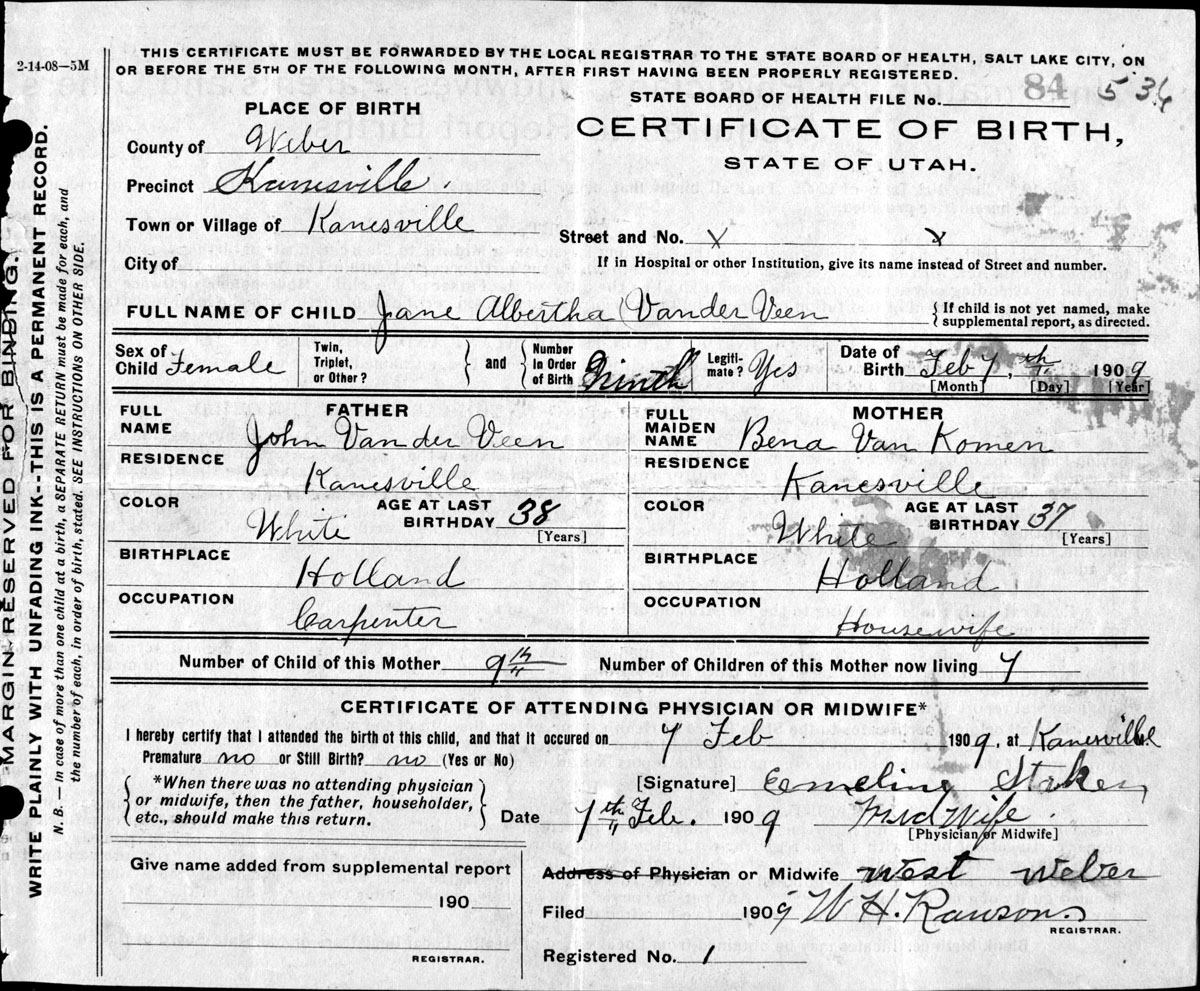 2-14-08—5M
THIS CERTIFICATE MUST BE FORWARDED BY THE LOCAL REGISTRAR TO THE STATE BOARD OF HEALTH, SALT LAKE CITY, ON
OR BEFORE THE 5TH OF THE FOLLOWING MONTH, AFTER FIRST HAVING BEEN PROPERLY REGISTERED.
STATE BOARD OF HEALTH FILE No. 84 536
PLACE OF BIRTH
CERTIFICATE OF BIRTH,
STATE OF UTAH.
County of Weber
Precinct Kanesville
Town or Village of Kanesville
Street and No. X X
City of
If in Hospital or other Institution, give its name instead of Street and number.
FULL NAME OF CHILD Jane Albertha Vander Veen
If child is not yet named, make
supplemental report, as directed.
Sex of
Child Female
Twin,
Triplet,
or Other?
and
Number
in Order
of Birth Ninth
Legiti-
mate? Yes
Date of
Birth Feb 7th 1909
[Month] [Day] [Year]
FATHER
FULL
NAME John Van der Veen
RESIDENCE
Kanesville
COLOR White
AGE AT LAST
BIRTHDAY 38
[Years]
BIRTHPLACE
Holland
OCCUPATION
Carpenter
MOTHER
FULL
MAIDEN
NAME Bena Van Komen
RESIDENCE
Kanesville
COLOR White
AGE AT LAST
BIRTHDAY 37
[Years]
BIRTHPLACE
Holland
OCCUPATION
Housewife
Number of Child of this Mother 9th Number of Children of this Mother now living 7
CERTIFICATE OF ATTENDING PHYSICIAN OR MIDWIFE*
I hereby certify that I attended the birth of this child, and that it occured on 7 Feb 1909, at Kanesville
Premature no or Still Birth? no (Yes or No)
*When there was no attending physician
or midwife, then the father, householder,
etc., should make this return.
[Signature] Emeline
Date 7th Feb. 1909 Mid Wife
[Physician or Midwife]
Give name added from supplemental report
190
REGISTRAR.
Address of Physician or Midwife West Weber
Filed 1909 W H. Rawson
REGISTRAR.
Registered No. 1
MARGIN RESERVED FOR BINDING.
WRITE PLAINLY WITH UNFADING INK--THIS IS A PERMANENT RECORD.
N. B.—In case of more than one child at a birth, a SEPARATE RETURN must be made for each, and
the number of each, in order of birth, stated. SEE INSTRUCTIONS ON OTHER SIDE.